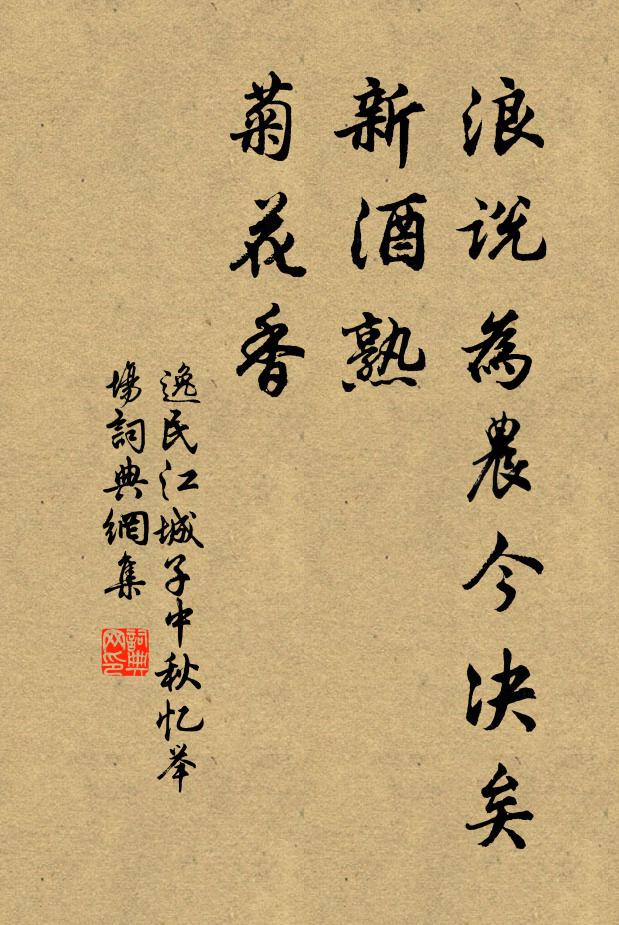 浪说為農今决矣
新酒熟
菊花香
逸民江城子中秋忆举
場詞典網集
詞典
网印